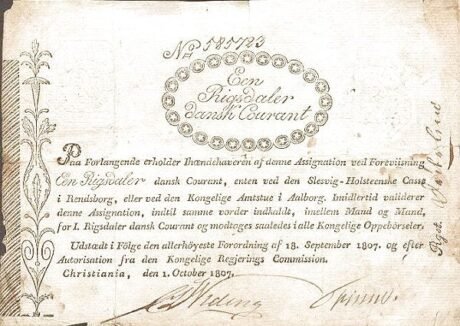 No 585723
Een
Rigsdaler
dansk Courant
Paa Forlangende erholder Ihændehaveren af denne Assignation ved Foreviisning
Een Rigsdaler dansk Courant, enten ved den Slesvig-Holsteenske Casse
i Rendsborg, eller ved den Kongelige Amtstue i Aalborg. Imidlertid validerer
denne Assignation, indtil samme vorder indkaldt, imellem Mand og Mand,
for 1. Rigsdaler dansk Courant og modtages saaledes i alle Kongelige Oppebörseler.
Udstædt i Fölge den allerhöyeste Forordning af 18. September 1807. og efter
Autorisation fra den Kongelige Regjerings Commission.
Christiania, den 1. October 1807.
Weding